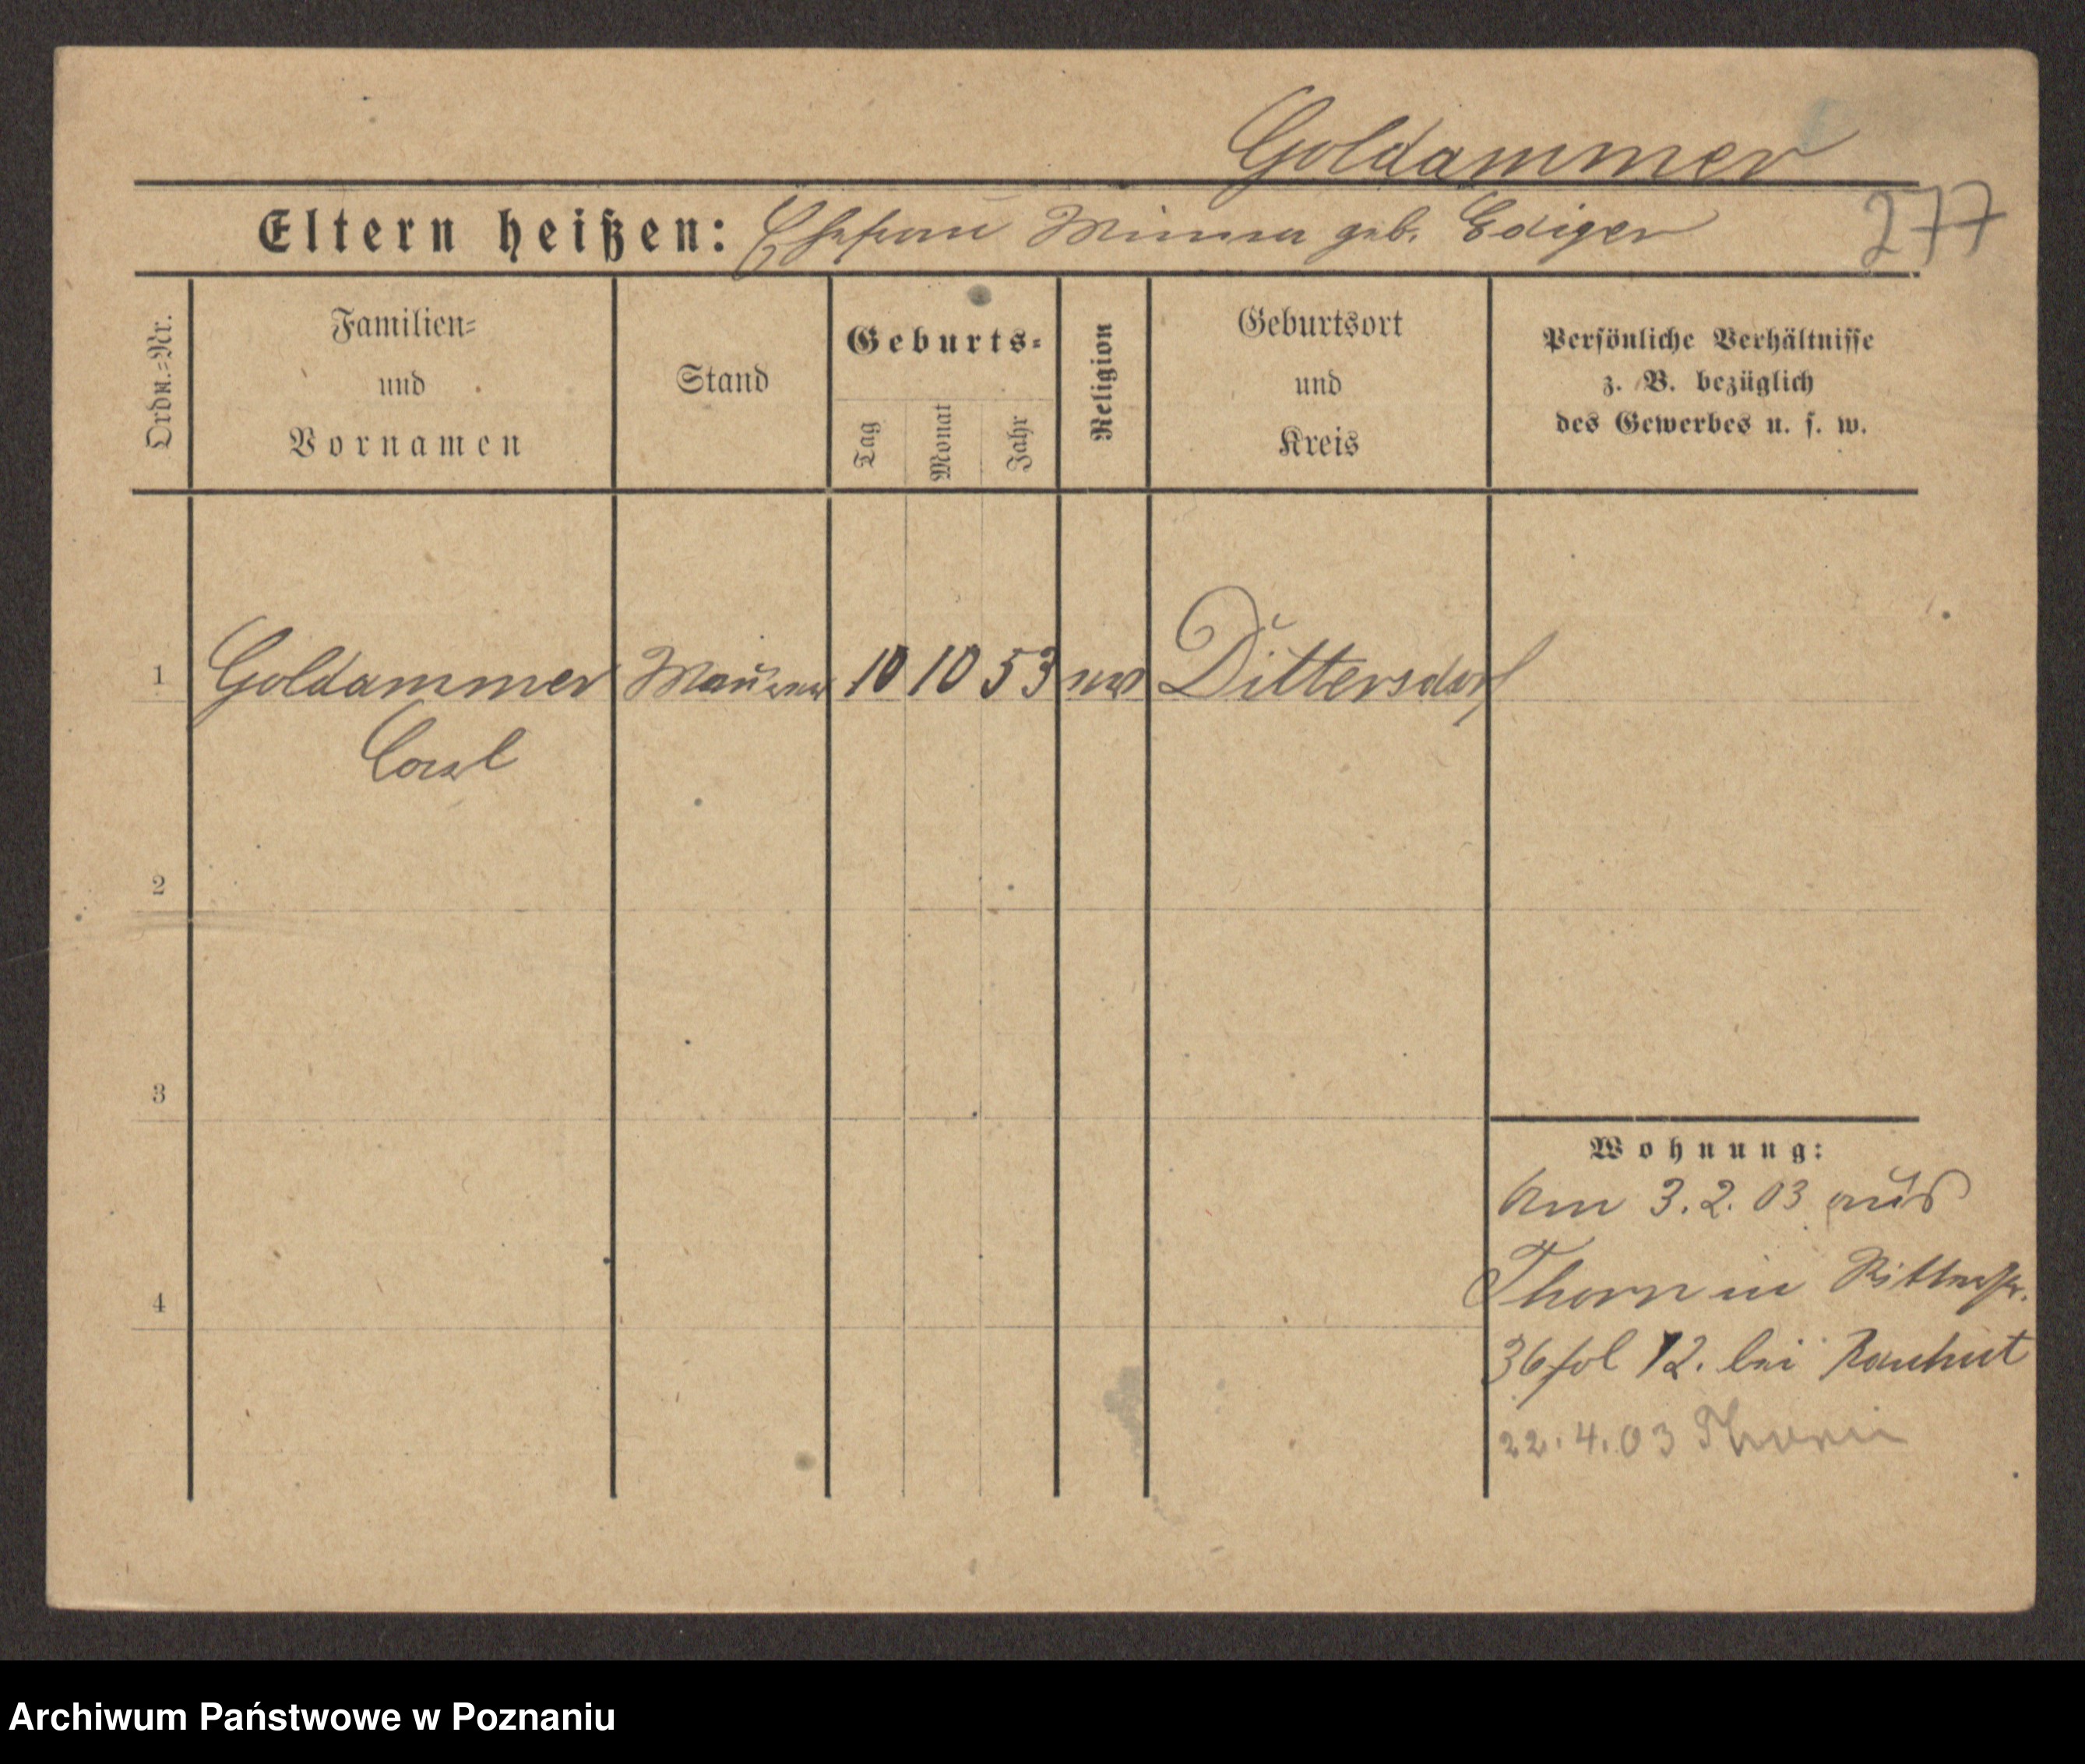 Goldammer
Eltern heißen: Ehefrau Minna geb. Ediger
277
Ordn.=Nr.
Familien=
und
Vornamen
Stand
Geburts=
Tag Monat Jahr
Religion
Geburtsort
und
Kreis
Persönliche Verhältnisse
z. B. bezüglich
des Gewerbes u. s. w.
1 Goldammer Maurer 10 10 53 Dittersdorf
Carl
2
3
4
Wohnung:
Am 3.2.03 aus
Thorn in Ritterstr.
36 fol 12. bei Rauhut
22.4.03 Thorn
Archiwum Państwowe w Poznaniu